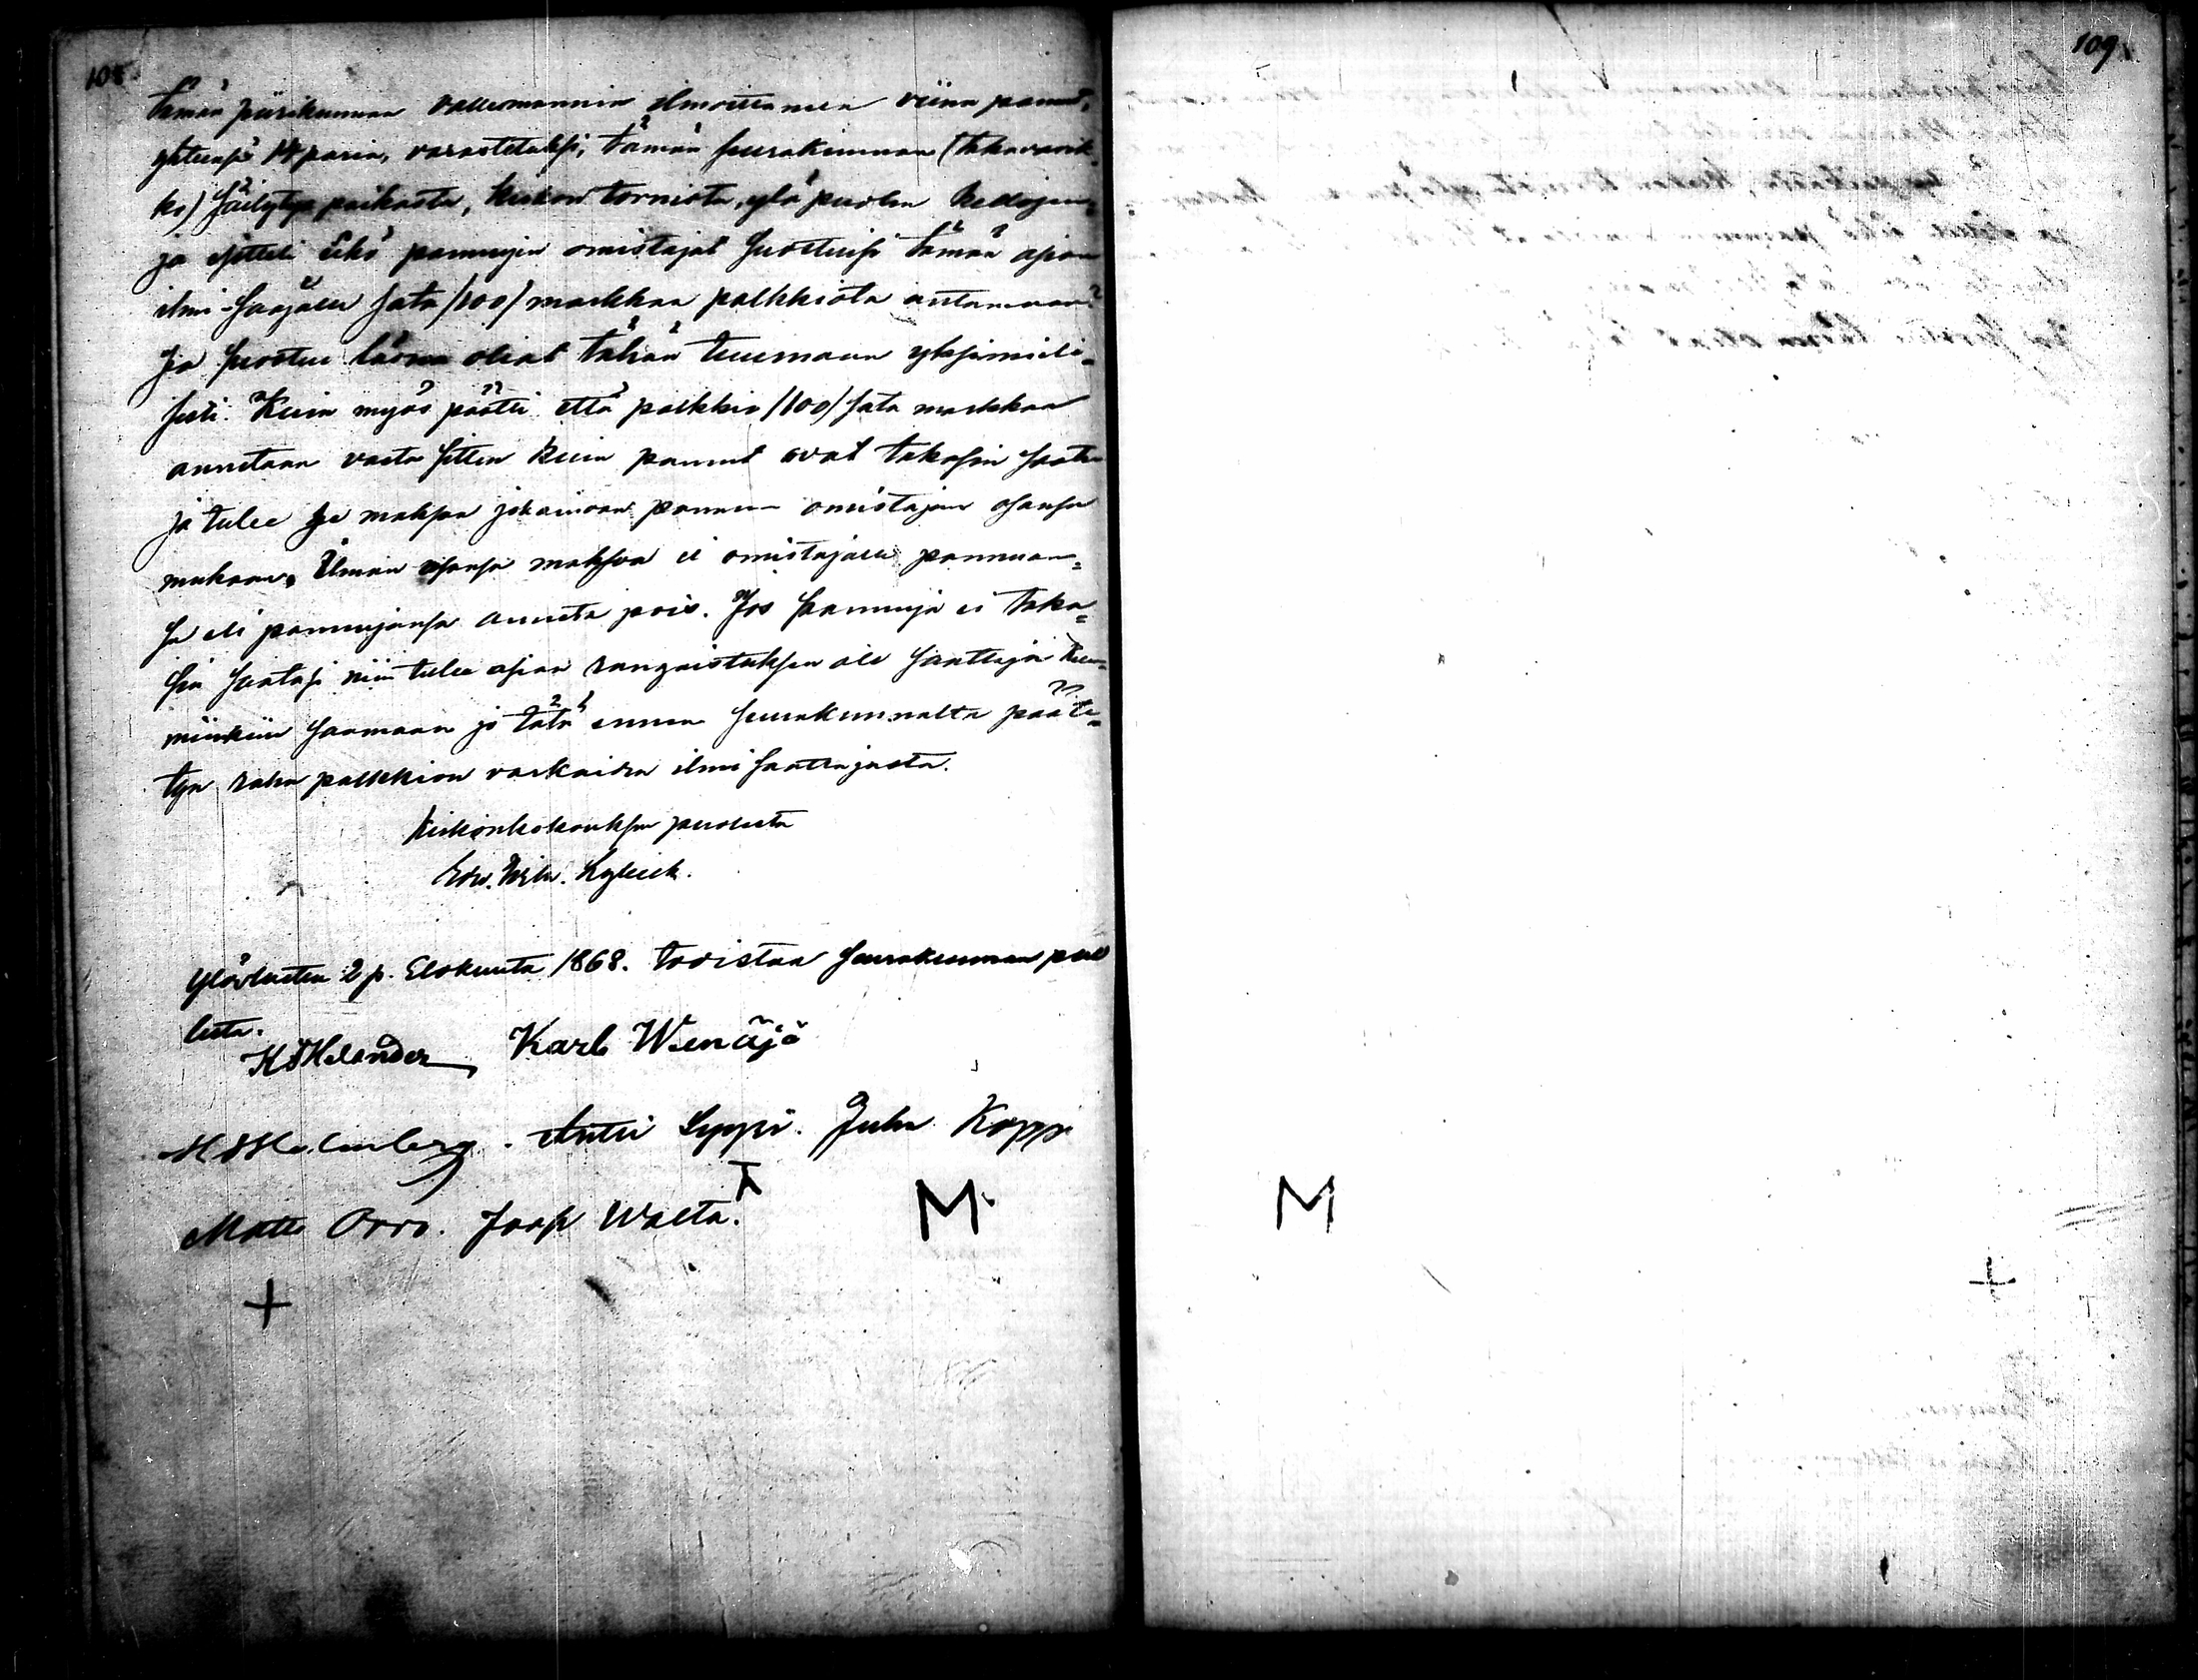 108.
109.
tämän piirikunnan vallesmannin ilmoittaneen viina pannut,
yhteensä 14 paria, varastetuksi, tämän seurakunnan (takavarik-
ko) säilytys paikasta, kirkon tornista, ylä puolen kellojen,
ja esitteli Eikö pannujen omistajat suostuisi tämän asian
ilmi-saajalle sata /100/ markkaa palkkiota antamaan?
Ja suostui läsnä oliat tähän tuumaan yksimieli-
sesti. Kuin myös päätti että palkkio /100/ sata markkaa
annetaan vasta sitten kuin pannut ovat takasin saatu
ja tulee se maksaa jokaisen pannu- omistajan osansa
mukaan. Ilman osansa maksoa ei omistajalle pannuan-
sa eli pannujansa anneta pois. Jos pannuja ei taka-
sin saataisi niin tulee asian rangaistuksen ale saattaja kui-
minkin saamaan jo tätä ennen seurakunnalta pääte-
tyn raha palkkion varkaiden ilmi saattajasta.
Kirkonkokouksen puolesta
Edw. Wilh.
Ylösluetun 2 p. Elokuuta 1868. todistaa seurakunnan puo
lesta.
K Helander Karl Wenäjä
Holmberg. Antti Lyppi. Juha Koppi
Matti Orro. Jaap Walta.
M
M